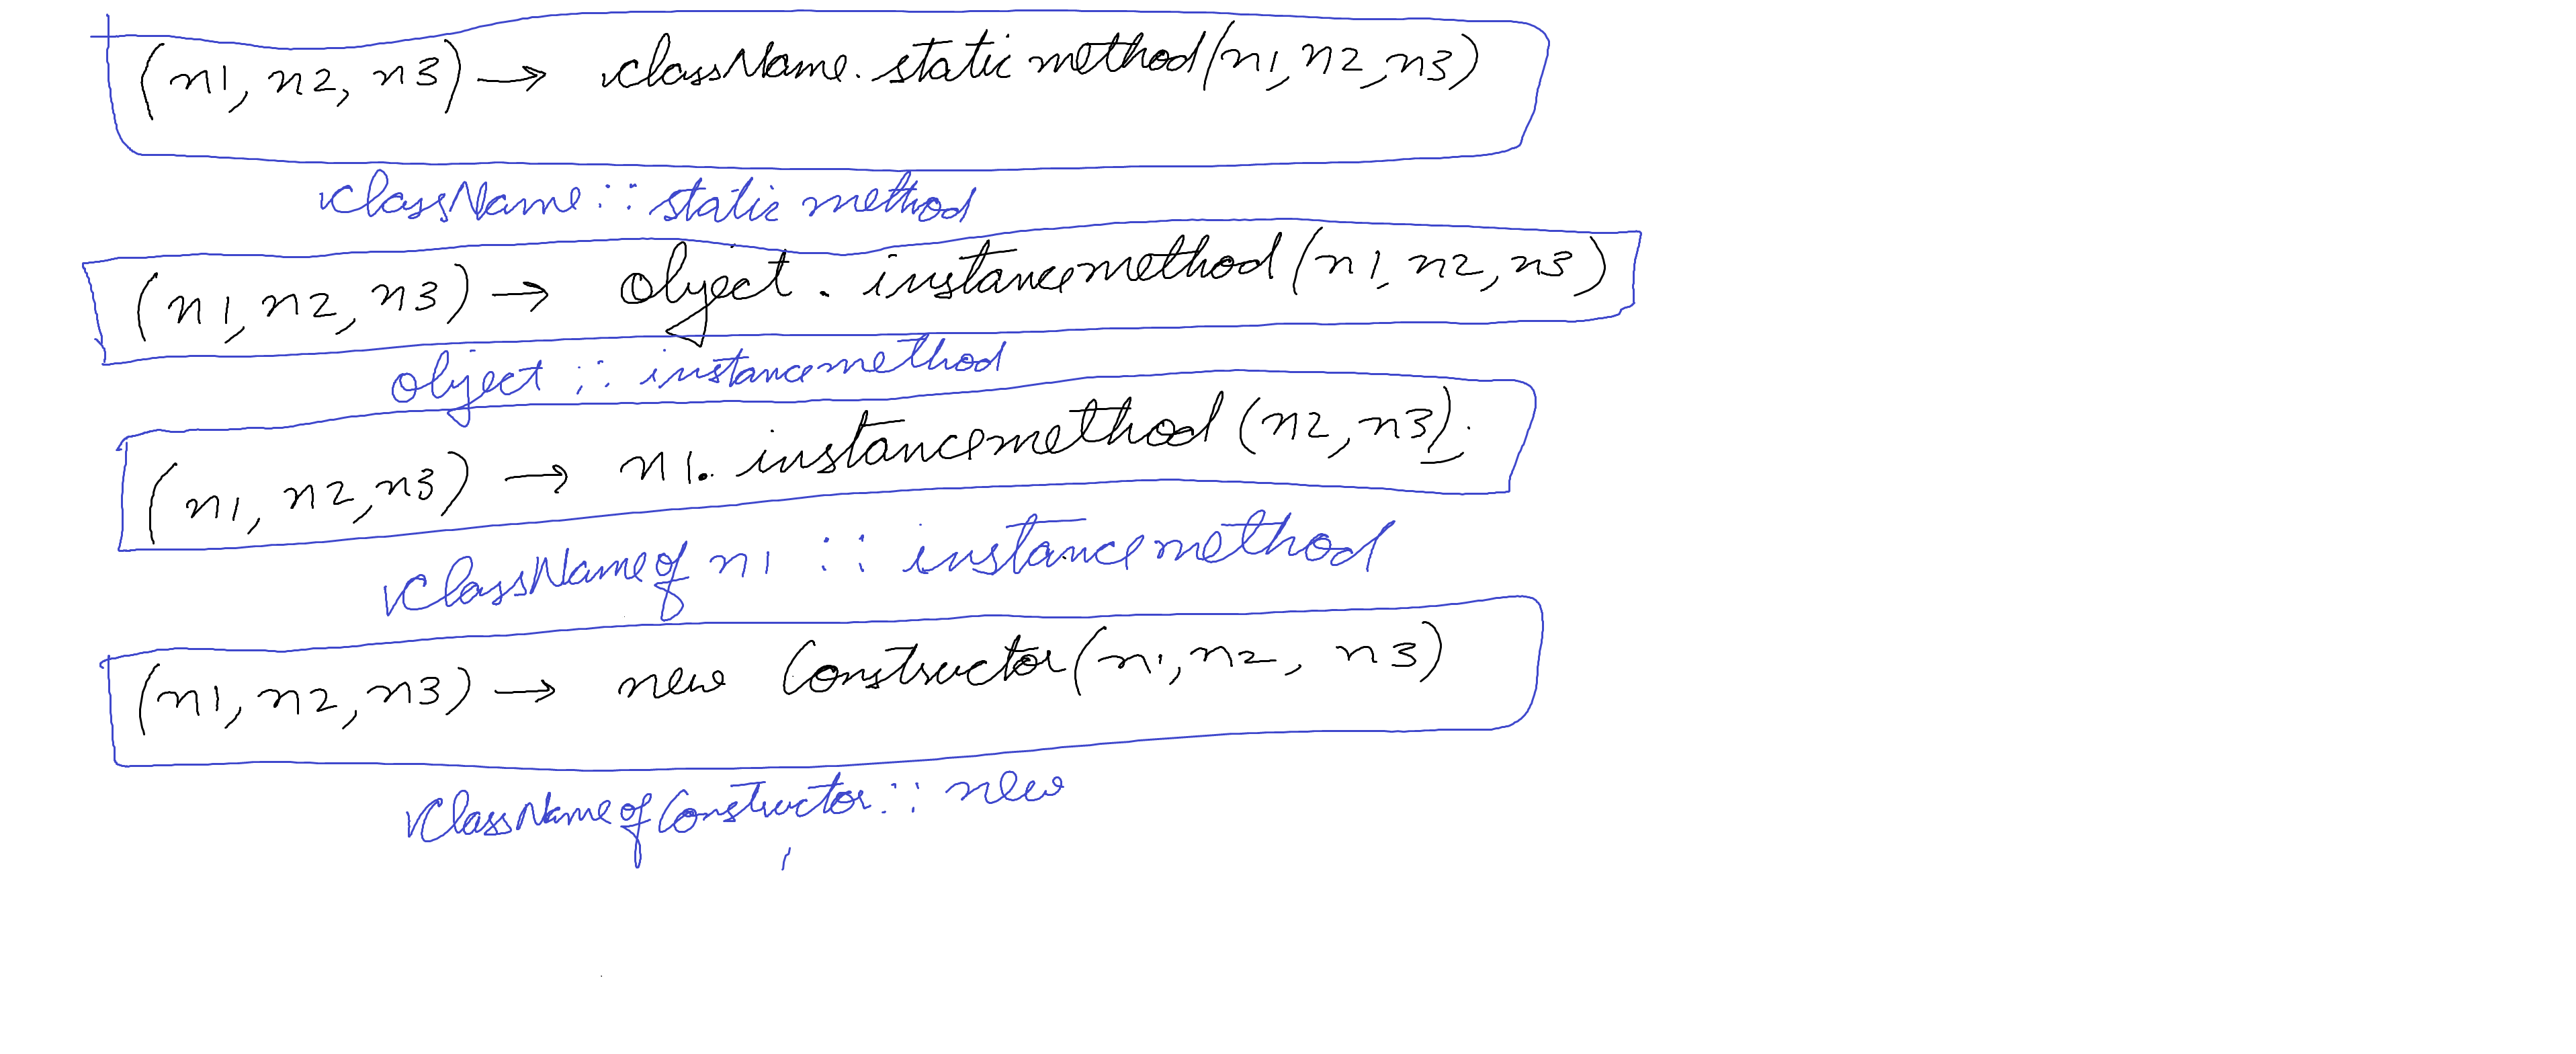 (n1, n2, n3) → className.static method(n1, n2, n3)
className :: static method
(n1, n2, n3) → object . instancemethod (n1, n2, n3)
object :: instancemethod
(n1, n2, n3) → n1. instancemethod (n2, n3);
ClassName of n1 :: instancemethod
(n1, n2, n3) → new Constructor(n1, n2, n3)
ClassName of Constructor :: new